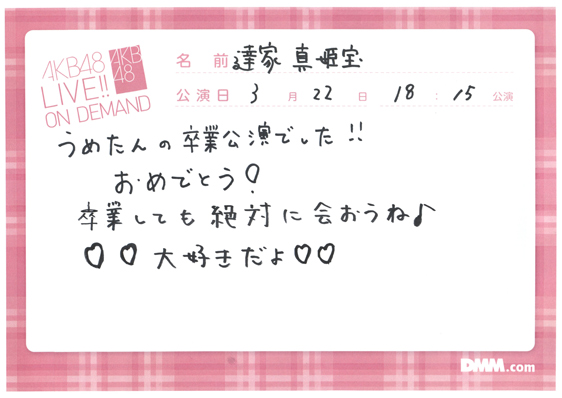 AKB48
LIVE!!
ON DEMAND
AKB
48
名 前 達家 真姫宝
公演日 3 月 22 日 18 : 15 公演
うめたんの卒業公演でした!!
おめでとう!
卒業しても絶対に会おうね♪
♡♡大好きだよ♡♡
DMM.com